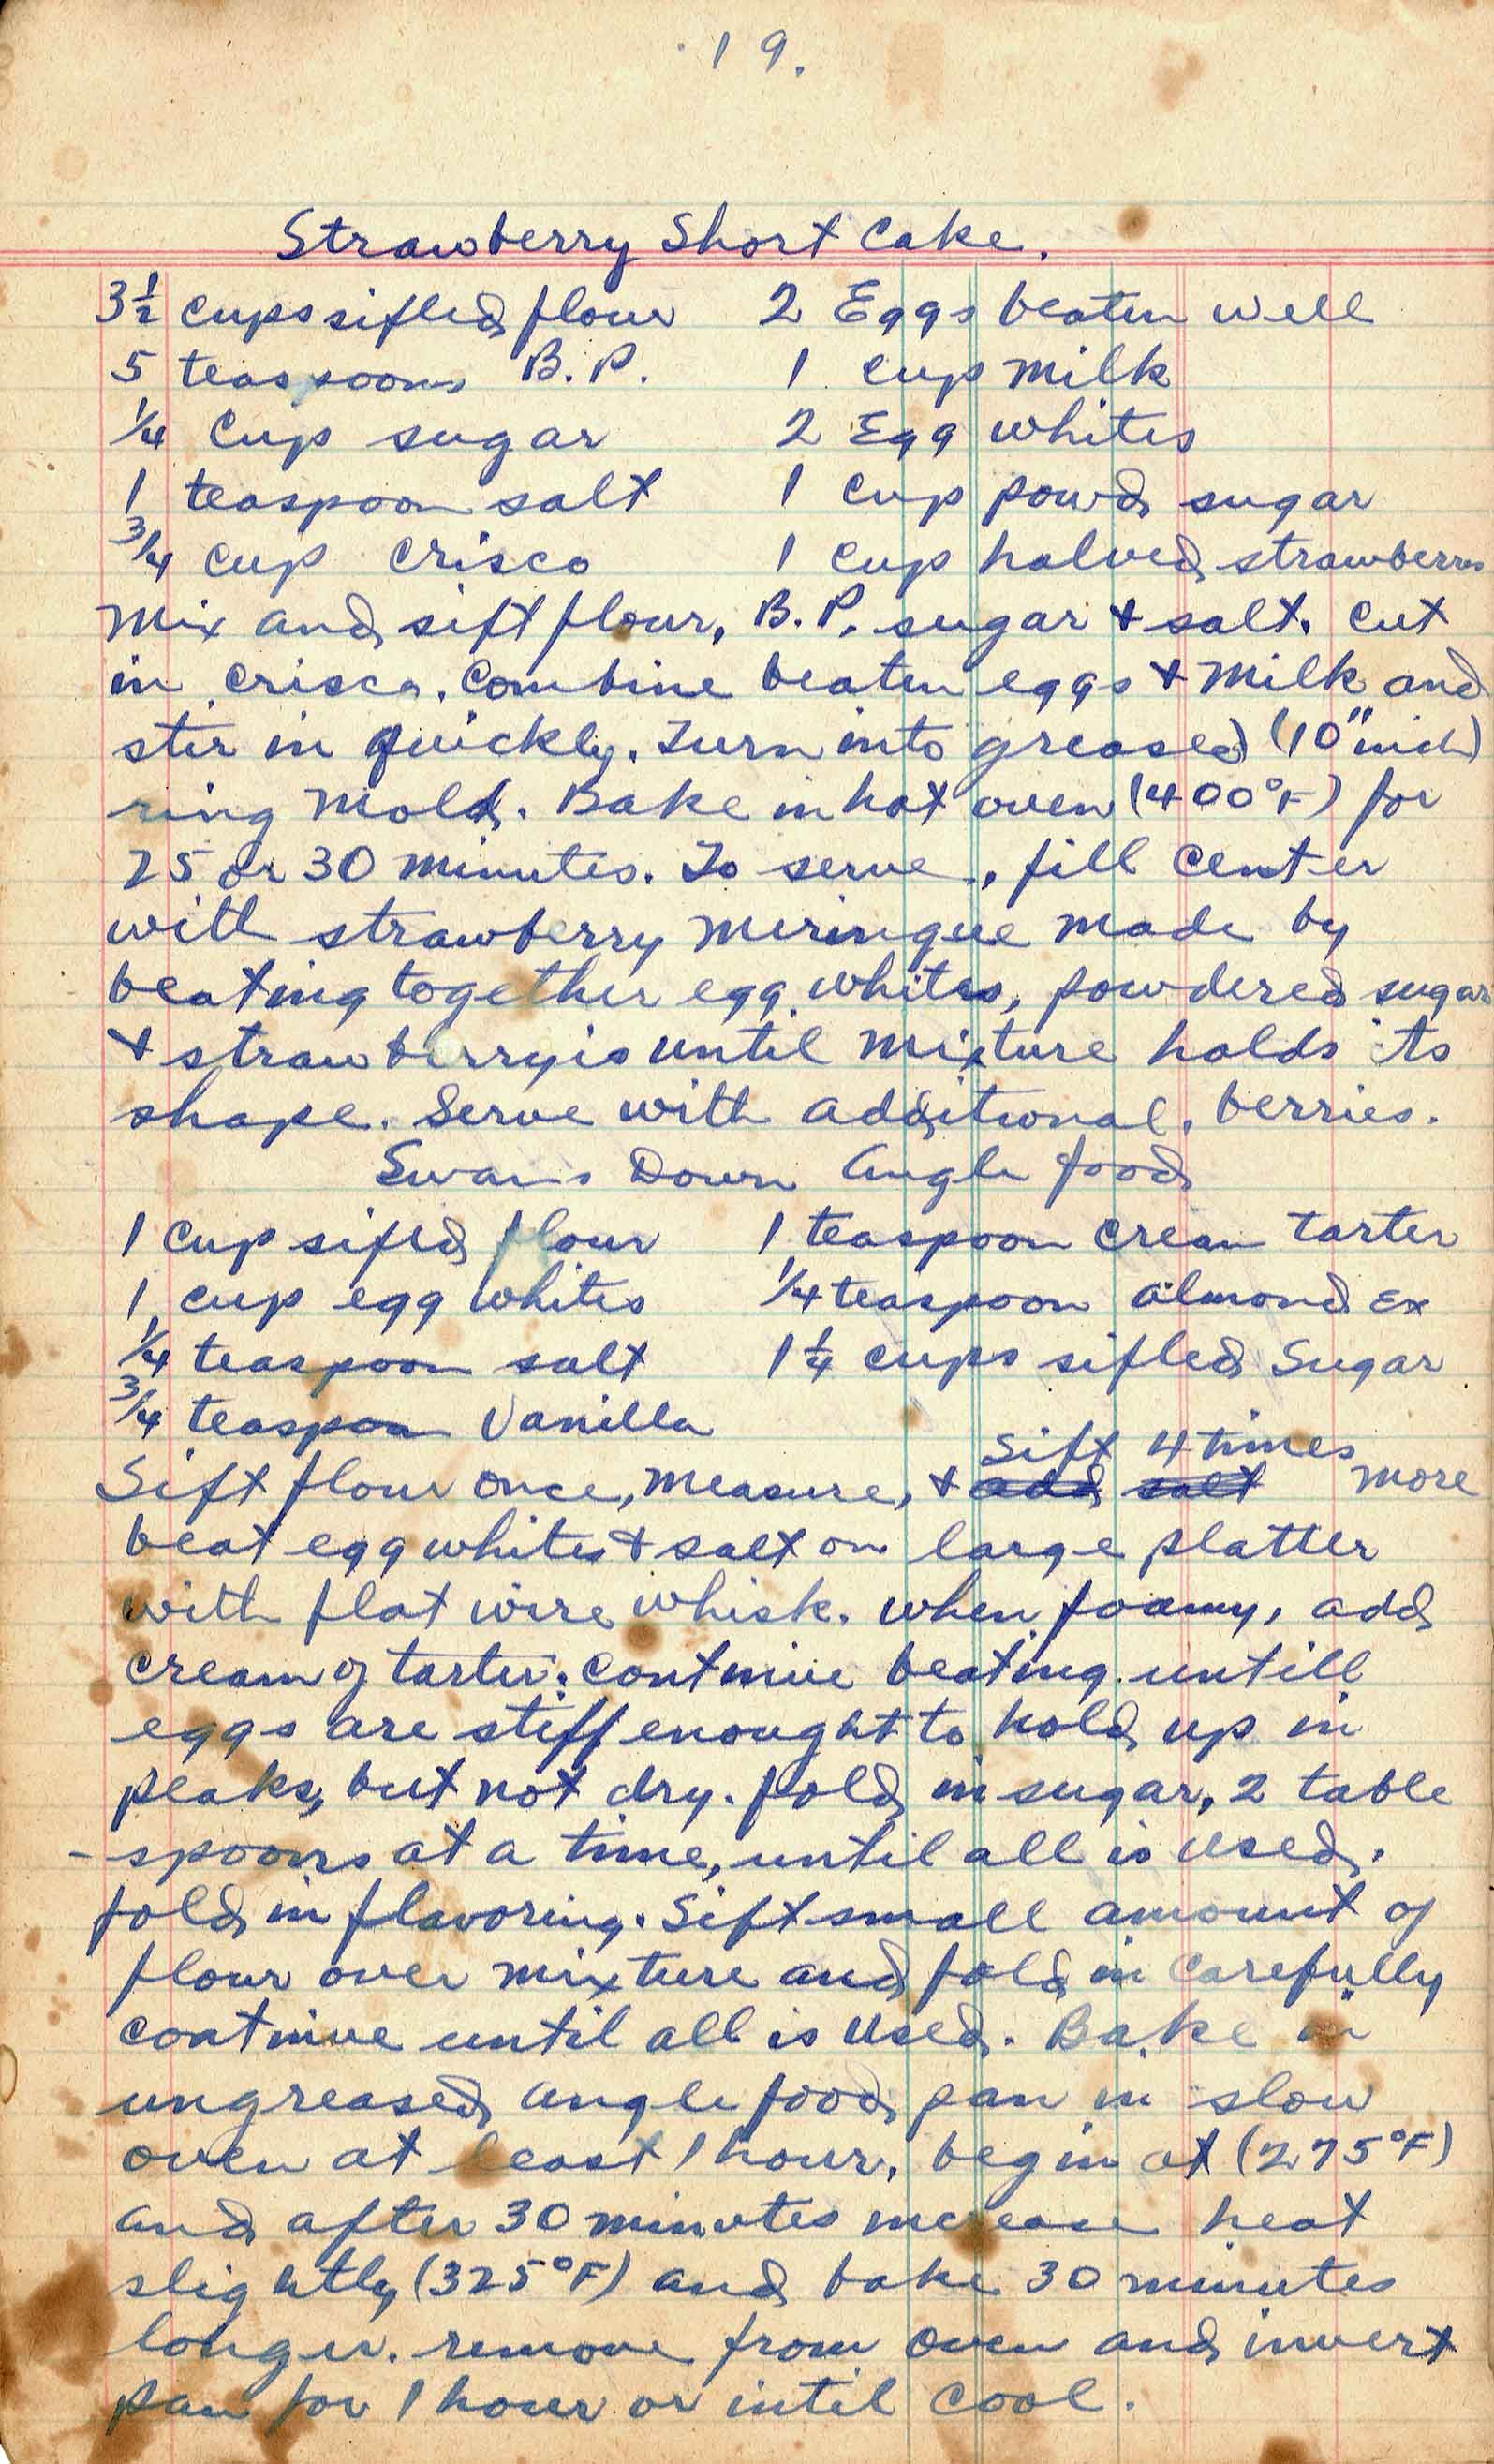 19.
Strawberry Short Cake.
3½ cups sifted flour 2 Eggs beaten well
5 teaspoons B.P. 1 cup milk
¼ cup sugar 2 Egg whites
1 teaspoon salt 1 cup powd sugar
¾ cup crisco 1 cup halved strawberries
Mix and sift flour, B.P. sugar & salt. cut
in crisco. Combine beaten eggs & milk and
stir in quickly. Turn into greased (10" inch)
ring mold. Bake in hot oven (400°F) for
25 or 30 minutes. To serve, fill center
with strawberry meringue made by
beating together egg whites, powdered sugar
& strawberryis until mixture holds its
shape. Serve with additional berries.
Swans Down Angle food
1 cup sifted flour 1 teaspoon cream tarter
1 cup egg whites ¼ teaspoon almond Ex
¼ teaspoon salt 1¼ cups sifted Sugar
¾ teaspoon Vanilla
Sift 4 times
Sift flour once, measure, & add salt more
beat egg whites & salt on large platter
with flat wire whisk. when foamy, add
cream of tarter: continue beating untill
eggs are stiff enought to hold up in
peaks, but not dry. fold in sugar, 2 table
-spoons at a time, until all is used.
fold in flavoring. Sift small amount of
flour over mixture and fold in carefully
continue until all is used. Bake in
ungreased angle food pan in slow
oven at least 1 hour, begin at (275°F)
and after 30 minutes increase heat
slightly (325°F) and bake 30 minutes
longer. remove from oven and invert
pan for 1 hour or intil cool.